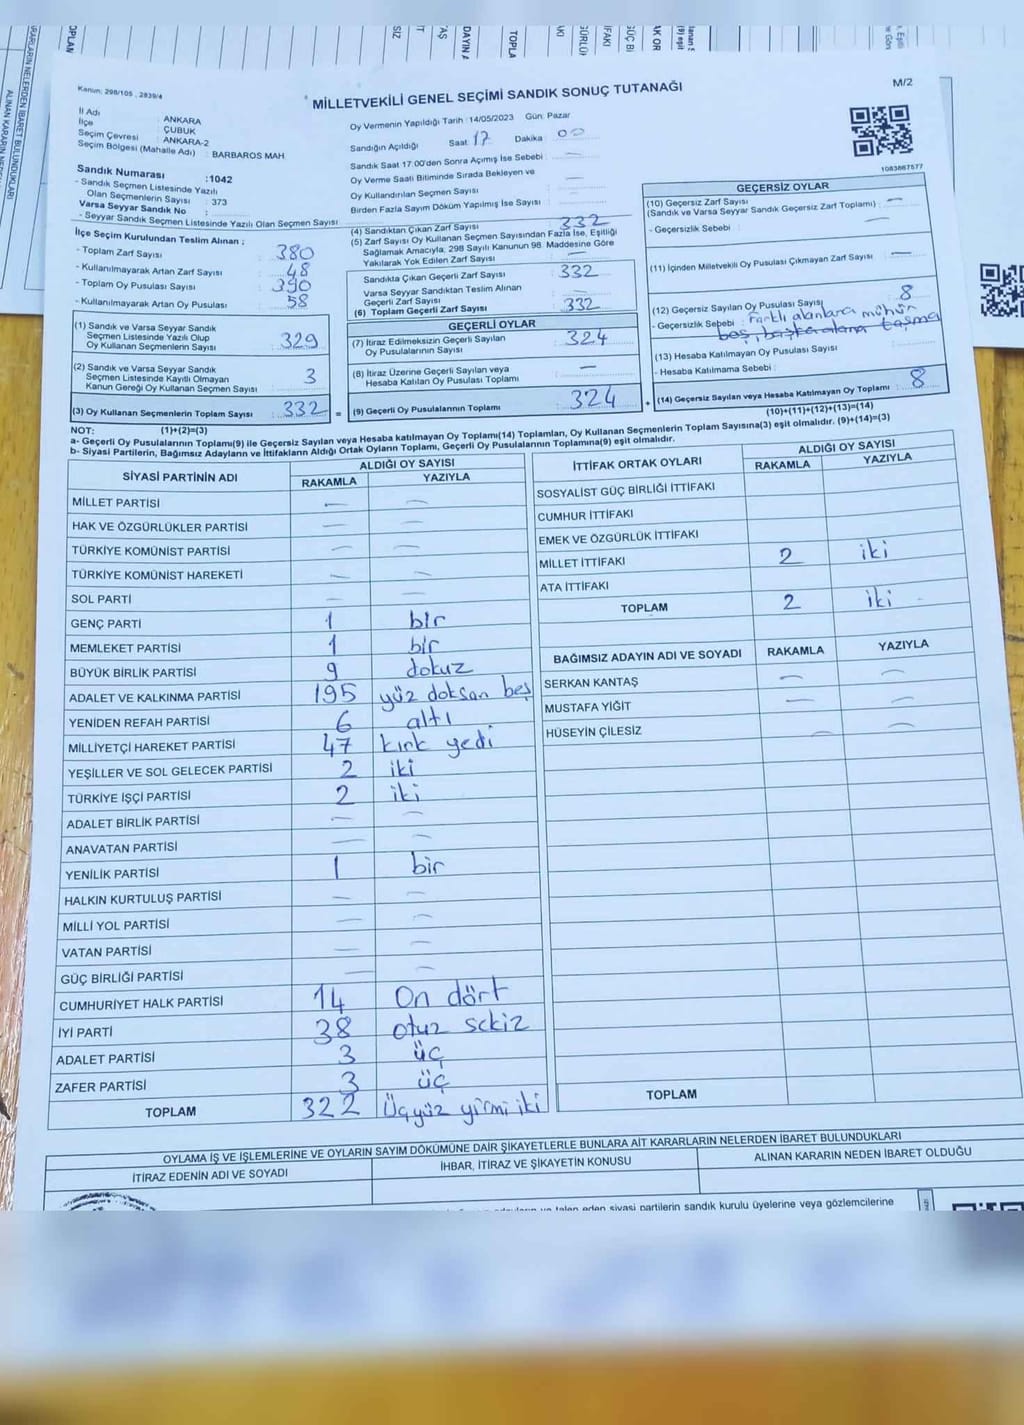 Kanun: 298/105 , 2839/4
MİLLETVEKİLİ GENEL SEÇİMİ SANDIK SONUÇ TUTANAĞI
M/2
İl Adı : ANKARA
İlçe : ÇUBUK
Seçim Çevresi : ANKARA-2
Seçim Bölgesi (Mahalle Adı) : BARBAROS MAH
Sandık Numarası :1042
- Sandık Seçmen Listesinde Yazılı
Olan Seçmenlerin Sayısı : 373
Varsa Seyyar Sandık No :
- Seyyar Sandık Seçmen Listesinde Yazılı Olan Seçmen Sayısı :
Oy Vermenin Yapıldığı Tarih : 14/05/2023 Gün: Pazar
Sandığın Açıldığı Saat 17 Dakika : 00
Sandık Saat 17:00'den Sonra Açımış İse Sebebi : —
Oy Verme Saati Bitiminde Sırada Bekleyen ve
Oy Kullandırılan Seçmen Sayısı : —
Birden Fazla Sayım Döküm Yapılmış İse Sayısı : —
1083867577
İlçe Seçim Kurulundan Teslim Alınan ;
- Toplam Zarf Sayısı : 380
- Kullanılmayarak Artan Zarf Sayısı : 48
- Toplam Oy Pusulası Sayısı : 390
- Kullanılmayarak Artan Oy Pusulası : 58
(1) Sandık ve Varsa Seyyar Sandık
Seçmen Listesinde Yazılı Olup
Oy Kullanan Seçmenlerin Sayısı : 329
(2) Sandık ve Varsa Seyyar Sandık
Seçmen Listesinde Kayıtlı Olmayan
Kanun Gereği Oy Kullanan Seçmen Sayısı : 3
(3) Oy Kullanan Seçmenlerin Toplam Sayısı : 332 =
(4) Sandıktan Çıkan Zarf Sayısı : 332
(5) Zarf Sayısı Oy Kullanan Seçmen Sayısından Fazla İse, Eşitliği
Sağlamak Amacıyla; 298 Sayılı Kanunun 98. Maddesine Göre
Yakılarak Yok Edilen Zarf Sayısı : —
Sandıkta Çıkan Geçerli Zarf Sayısı : 332
Varsa Seyyar Sandıktan Teslim Alınan
Geçerli Zarf Sayısı : —
(6) Toplam Geçerli Zarf Sayısı : 332
GEÇERLİ OYLAR
(7) İtiraz Edilmeksizin Geçerli Sayılan
Oy Pusulalarının Sayısı : 324
(8) İtiraz Üzerine Geçerli Sayılan veya
Hesaba Katılan Oy Pusulası Toplamı : —
(9) Geçerli Oy Pusulalarının Toplamı : 324 +
GEÇERSİZ OYLAR
(10) Geçersiz Zarf Sayısı
(Sandık ve Varsa Seyyar Sandık Geçersiz Zarf Toplamı) : —
- Geçersizlik Sebebi : —
(11) İçinden Milletvekili Oy Pusulası Çıkmayan Zarf Sayısı : —
(12) Geçersiz Sayılan Oy Pusulası Sayısı : 8
- Geçersizlik Sebebi : Farklı alanlara mühür
boş, başka alana taşma
(13) Hesaba Katılmayan Oy Pusulası Sayısı :
- Hesaba Katılmama Sebebi :
(14) Geçersiz Sayılan veya Hesaba Katılmayan Oy Toplamı : 8
NOT: (1)+(2)=(3)
(10)+(11)+(12)+(13)=(14)
a- Geçerli Oy Pusulalarının Toplamı(9) ile Geçersiz Sayılan veya Hesaba katılmayan Oy Toplamı(14) Toplamları, Oy Kullanan Seçmenlerin Toplam Sayısına(3) eşit olmalıdır. (9)+(14)=(3)
b- Siyasi Partilerin, Bağımsız Adayların ve İttifakların Aldığı Ortak Oyların Toplamı, Geçerli Oy Pusulalarının Toplamına(9) eşit olmalıdır.
SİYASİ PARTİNİN ADI ALDIĞI OY SAYISI
RAKAMLA YAZIYLA
MİLLET PARTİSİ — —
HAK VE ÖZGÜRLÜKLER PARTİSİ — —
TÜRKİYE KOMÜNİST PARTİSİ — —
TÜRKİYE KOMÜNİST HAREKETİ — —
SOL PARTİ — —
GENÇ PARTİ 1 bir
MEMLEKET PARTİSİ 1 bir
BÜYÜK BİRLİK PARTİSİ 9 dokuz
ADALET VE KALKINMA PARTİSİ 195 yüz doksan beş
YENİDEN REFAH PARTİSİ 6 altı
MİLLİYETÇİ HAREKET PARTİSİ 47 kırk yedi
YEŞİLLER VE SOL GELECEK PARTİSİ 2 iki
TÜRKİYE İŞÇİ PARTİSİ 2 iki
ADALET BİRLİK PARTİSİ — —
ANAVATAN PARTİSİ — —
YENİLİK PARTİSİ 1 bir
HALKIN KURTULUŞ PARTİSİ — —
MİLLİ YOL PARTİSİ — —
VATAN PARTİSİ — —
GÜÇ BİRLİĞİ PARTİSİ — —
CUMHURİYET HALK PARTİSİ 14 On dört
İYİ PARTİ 38 otuz sekiz
ADALET PARTİSİ 3 üç
ZAFER PARTİSİ 3 üç
TOPLAM 322 Üçyüz yirmi iki
İTTİFAK ORTAK OYLARI ALDIĞI OY SAYISI
RAKAMLA YAZIYLA
SOSYALİST GÜÇ BİRLİĞİ İTTİFAKI
CUMHUR İTTİFAKI
EMEK VE ÖZGÜRLÜK İTTİFAKI
MİLLET İTTİFAKI 2 iki
ATA İTTİFAKI
TOPLAM 2 iki
BAĞIMSIZ ADAYIN ADI VE SOYADI RAKAMLA YAZIYLA
SERKAN KANTAŞ — —
MUSTAFA YİĞİT — —
HÜSEYİN ÇİLESİZ — —
TOPLAM
OYLAMA İŞ VE İŞLEMLERİNE VE OYLARIN SAYIM DÖKÜMÜNE DAİR ŞİKAYETLERLE BUNLARA AİT KARARLARIN NELERDEN İBARET BULUNDUKLARI
İTİRAZ EDENİN ADI VE SOYADI İHBAR, İTİRAZ VE ŞİKAYETİN KONUSU ALINAN KARARIN NEDEN İBARET OLDUĞU
eden siyasi partilerin sandık kurulu üyelerine veya gözlemcilerine